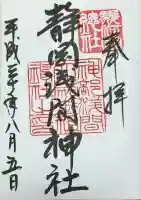 奉拝
静岡浅間神社
平成三十年八月五日